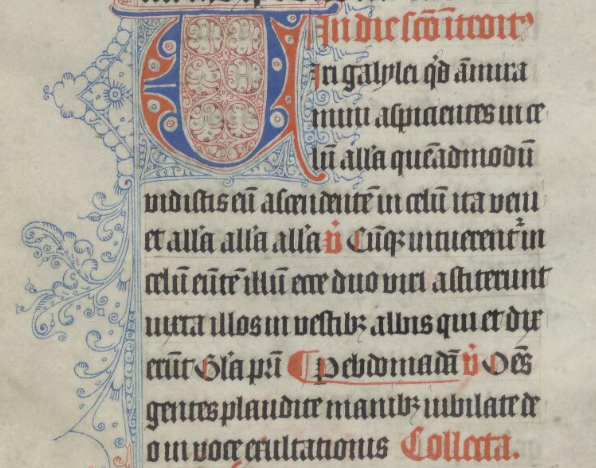 In die scō ītroitꝰ
Viri galylei qd āmira
mini aspicientes in ce
lū all'a quēadmodū
vidistis eū ascendentē in celū ita veni
et all'a all'a all'a v̇ Cūqꝫ intuerent᷑ in
celū eūtē illū ecce duo viri astiterunt
iuxta illos in vestibꝫ albis qui et dix
erūt Gl'a pri̅ ¶ p ebdomadā v̇ Oēs
gentes plaudite manibꝫ iubilate de
o in voce exultationis Collecta.